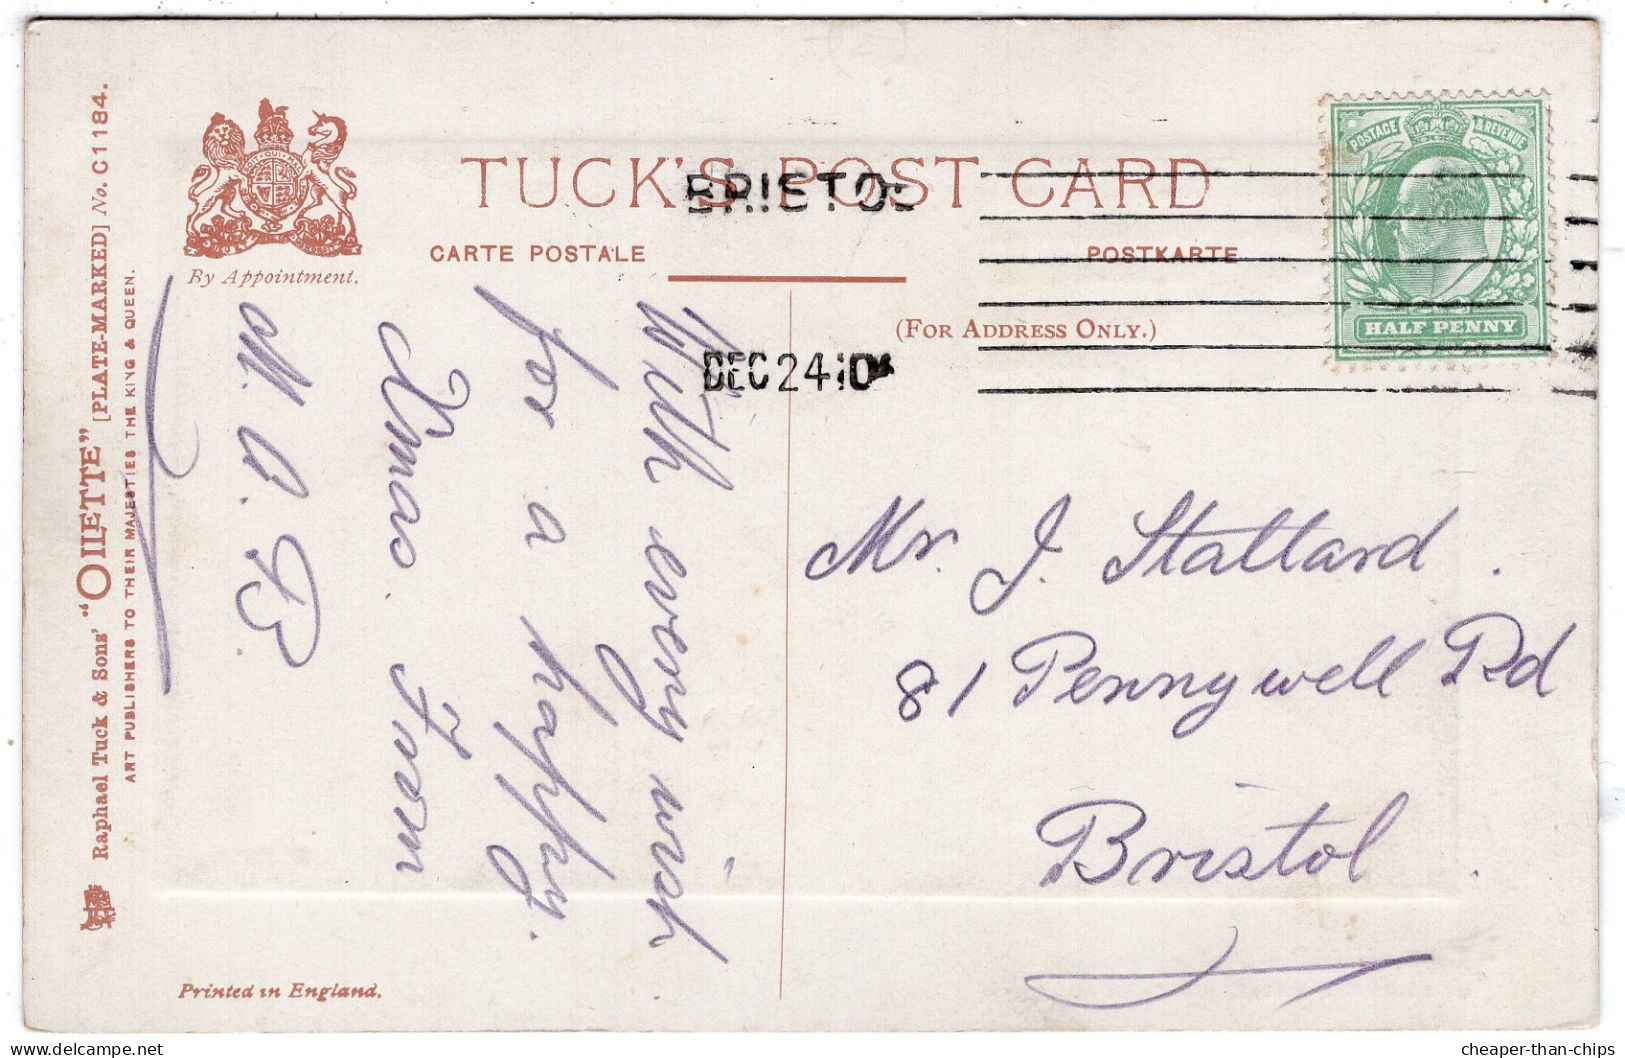 TUCK'S POST CARD
CARTE POSTALE
POSTKARTE
(FOR ADDRESS ONLY.)
By Appointment.
BRISTOL
DEC 24 10
POSTAGE & REVENUE
HALF PENNY
Raphael Tuck & Sons' "OILETTE" [PLATE-MARKED] No. C 1184.
ART PUBLISHERS TO THEIR MAJESTIES THE KING & QUEEN.
With every wish
for a happy.
Xmas. From
M. A. B.
Mr. J. Stallard.
81 Pennywell Rd
Bristol
Printed in England.
cheaper-than-chips
delcampe.net